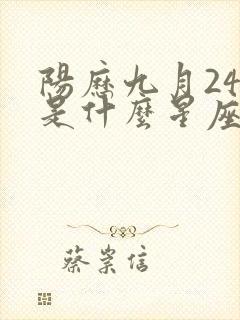 陽歷九月24
是什麼星座
蔡崇信